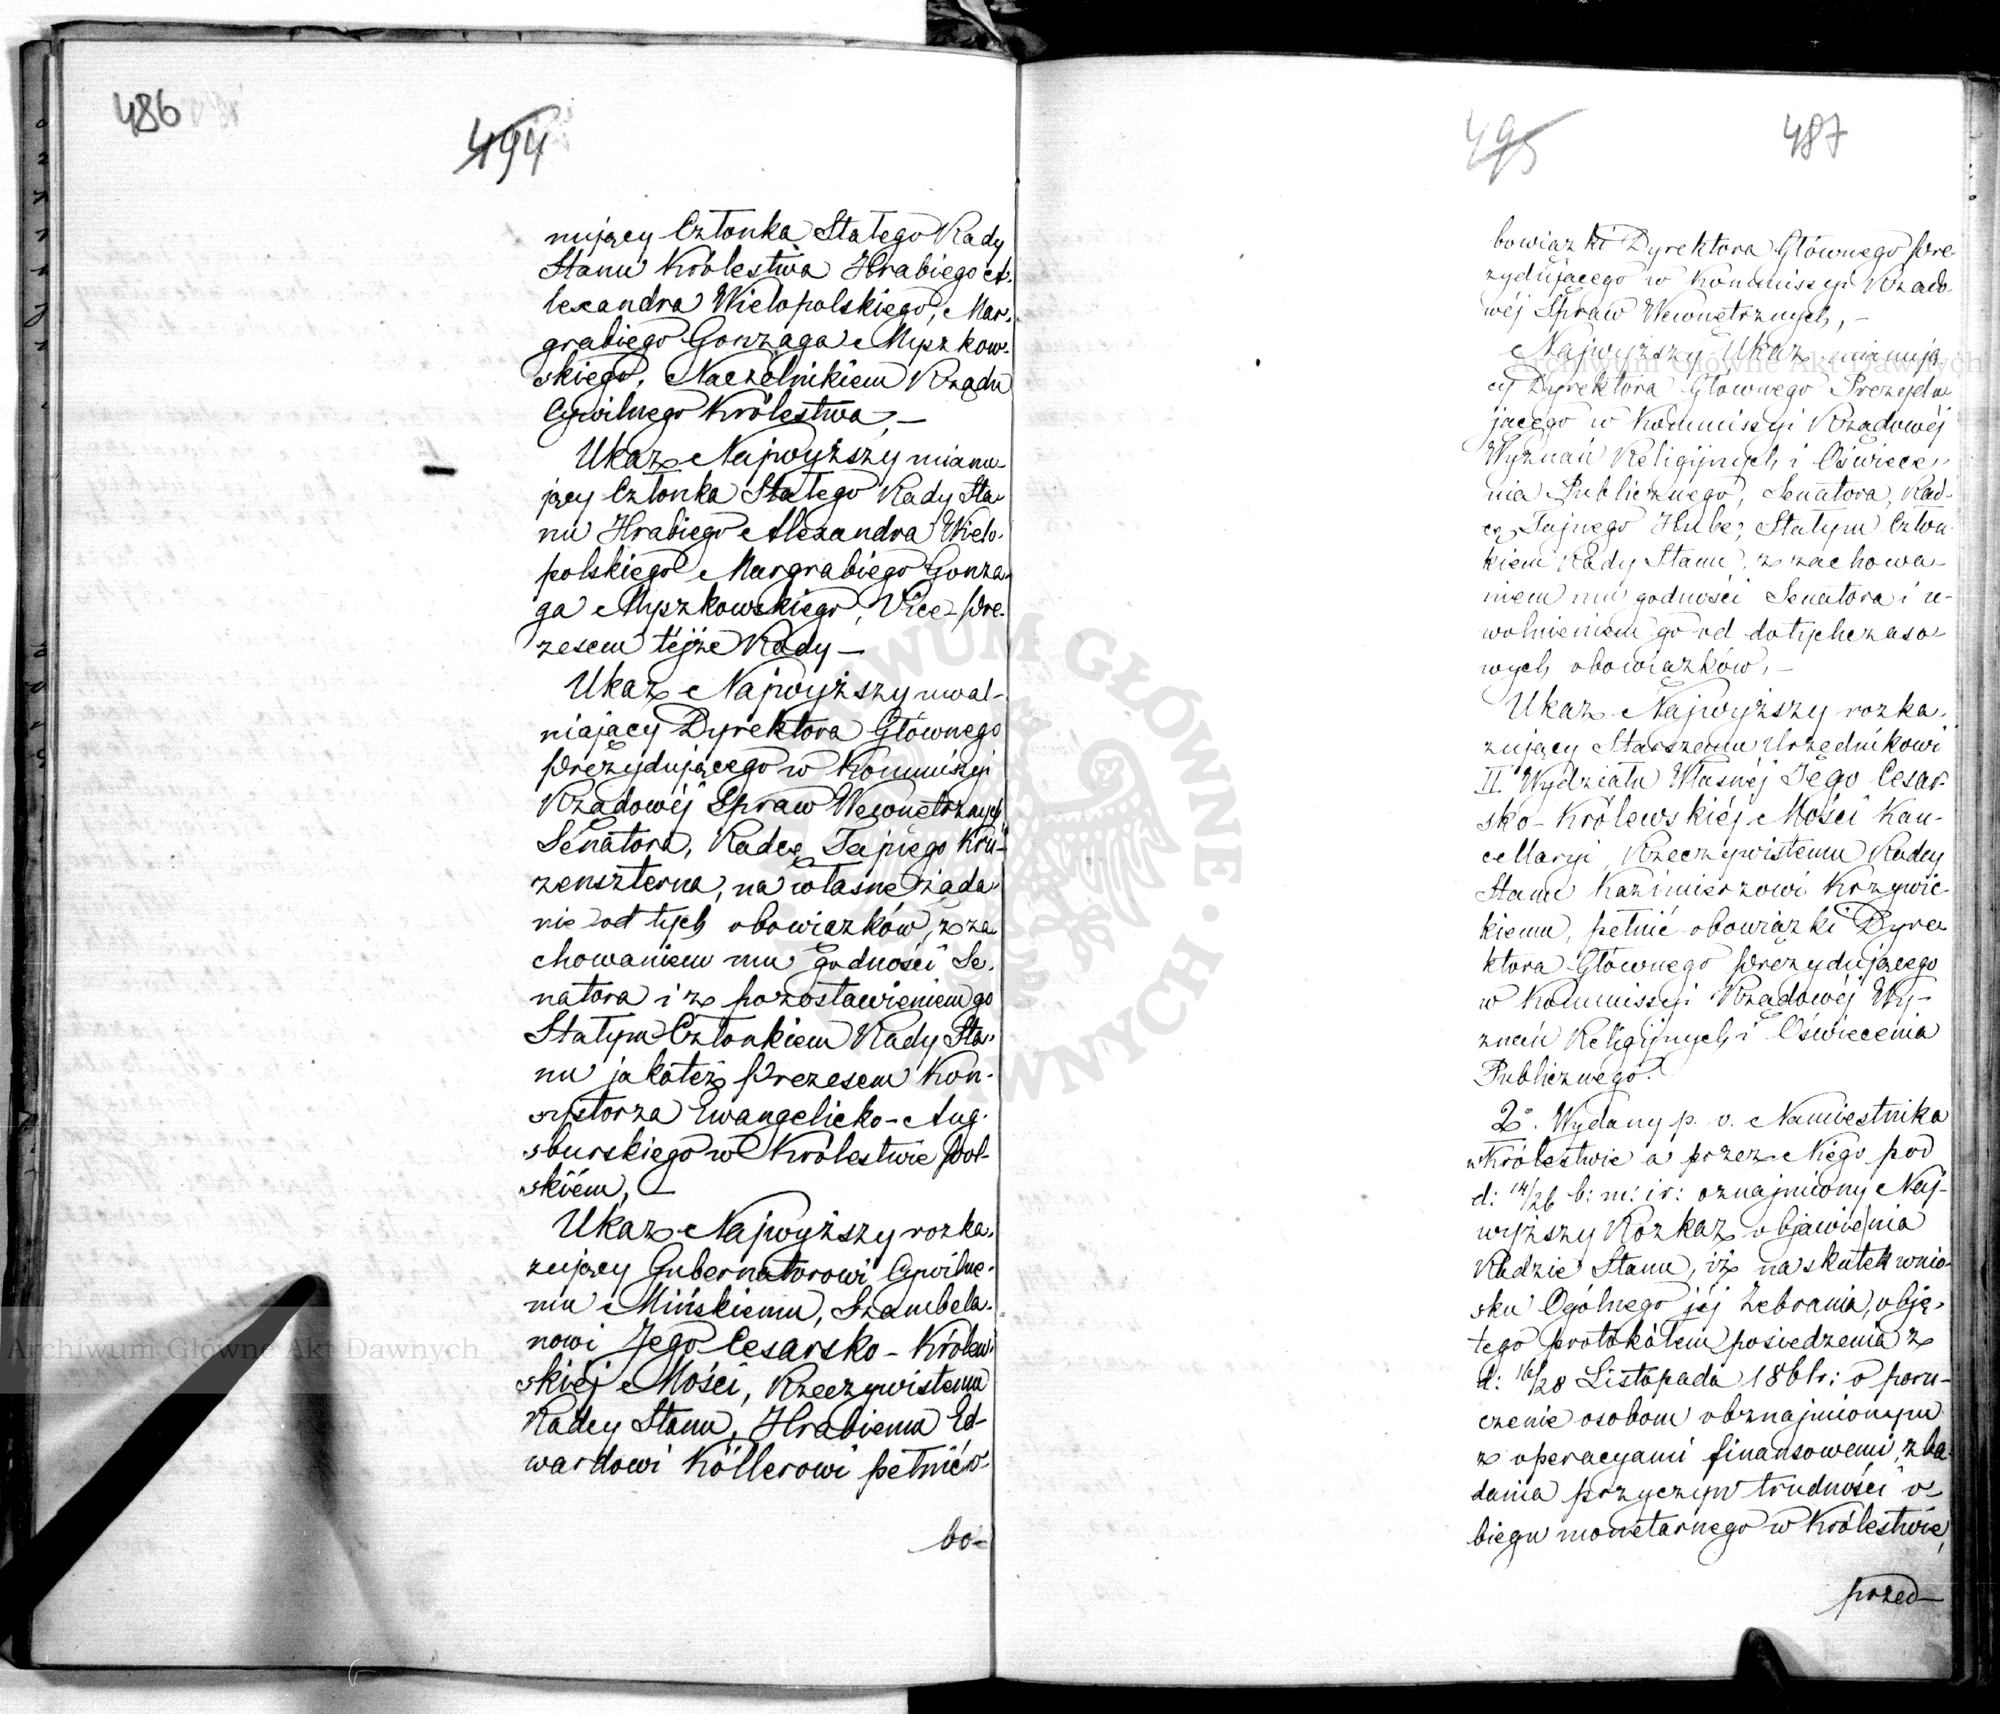 486
494
nujący Członka Stałego Rady
Stanu Królestwa Hrabiego A-
lexandra Wielopolskiego, Mar-
grabiego Gonzaga Myszkow-
skiego, Naczelnikiem Rządu
Cywilnego Królestwa, —
Ukaz Najwyższy mianu-
jący Członka Stałego Rady Sta-
nu Hrabiego Alexandra Wielo-
polskiego Margrabiego Gonza-
ga Myszkowskiego, Vice-Pre-
zesem téjże Rady —
Ukaz Najwyższy uwal-
niający Dyrektora Głównego
Prezydującego w Kommissyi
Rządowéj Spraw Wewnętrznych,
Senatora, Radcę Tajnego Kru-
zenszterna, na własne żąda-
nie od tych obowiązków, z za-
chowaniem mu godności Se-
natora i z pozostawieniem go
Stałym Członkiem Rady Sta-
nu jakotéż Prezesem Kon-
systorza Ewangelicko-Aug-
sburskiego w Królestwie Pol-
skiém, —
Ukaz Najwyższy rozka-
zujący Gubernatorowi Cywilne-
mu Mińskiemu, Szambela-
nowi Jego Cesarsko-Królew-
skiéj Mości, Rzeczywistemu
Radcy Stanu, Hrabiemu Ed-
wardowi Köllerowi pełnić o-
bo-
495
487
bowiązki Dyrektora Głównego Pre-
zydującego w Kommissyi Rządo-
wéj Spraw Wewnętrznych, —
Najwyższy Ukaz mianują-
cy Dyrektora Głównego Prezydu-
jącego w Kommissyi Rządowéj
Wyznań Religijnych i Oświece-
nia Publicznego, Senatora, Rad-
cę Tajnego Hube, Stałym Człon-
kiem Rady Stanu, z zachowa-
niem mu godności Senatora i u-
wolnieniem go od dotychczaso-
wych obowiązków, —
Ukaz Najwyższy rozka-
zujący Starszemu Urzędnikowi
II Wydziału Własnéj Jego Cesar-
sko-Królewskiéj Mości Kan-
cellaryi, Rzeczywistemu Radcy
Stanu Kazimierzowi Krzywic-
kiemu, pełnić obowiązki Dyre-
ktora Głównego Prezydującego
w Kommissyi Rządowéj Wy-
znań Religijnych i Oświecenia
Publicznego.
2o. Wydany p. o. Namiestnika
w Królestwie a przez Niego pod
d: 14/26 b: m: i r: oznajmiony Naj-
wyższy Rozkaz objawienia
Radzie Stanu, iż na skutek wnio-
sku Ogólnego jéj Zebrania, obję-
tego protokółem posiedzenia z
d: 16/28 Listopada 1861 r: o poru-
czenie osobom obznajmionym
z operacyami finansowemi, zba-
dania przyczyn trudności o-
biegu monetarnego w Królestwie,
przed-
Archiwum Główne Akt Dawnych
Archiwum Główne Akt Dawnych